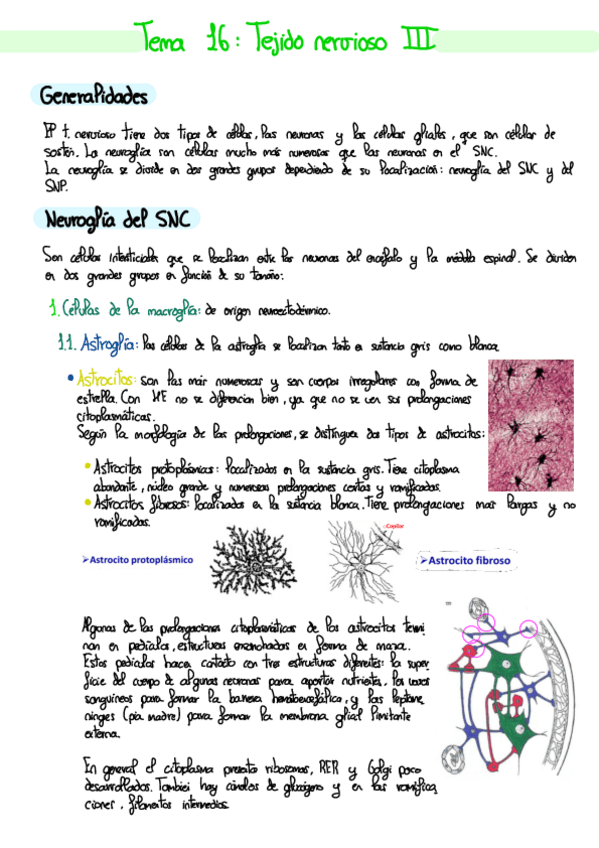 Tema 16: Tejido nervioso III
Generalidades
El t. nervioso tiene dos tipos de células, las neuronas y las células gliales, que son células de
sostén. La neuroglía son células mucho más numerosas que las neuronas en el SNC.
La neuroglía se divide en dos grandes grupos dependiendo de su localización: neuroglía del SNC y del
SNP.
Neuroglía del SNC
Son células intersticiales que se localizan entre las neuronas del encéfalo y la médula espinal. Se dividen
en dos grandes grupos en función de su tamaño:
1. Células de la macroglía: de origen neuroectodérmico.
1.1. Astroglía: las células de la astroglía se localizan tanto en sustancia gris como blanca
• Astrocitos: son las más numerosas y son cuerpos irregulares con forma de
estrella. Con HE no se diferencian bien, ya que no se ven sus prolongaciones
citoplasmáticas.
Según la morfología de las prolongaciones, se distinguen dos tipos de astrocitos:
• Astrocitos protoplásmicos: localizados en la sustancia gris. Tiene citoplasma
abundante, núcleo grande y numerosas prolongaciones cortas y ramificadas.
• Astrocitos fibrosos: localizados en la sustancia blanca. Tiene prolongaciones mas largas y no
ramificadas.
Capilar
➢Astrocito protoplásmico
➢Astrocito fibroso
Algunas de las prolongaciones citoplasmáticas de los astrocitos termi
nan en pedicelos, estructuras ensanchadas en forma de maza.
Estos pedicelos hacen contacto con tres estructuras diferentes: la super
ficie del cuerpo de algunas neuronas para aportar nutrientes, los vasos
sanguíneos para formar la barrera hematoencefálica, y las leptome
ninges (pía madre) para formar la membrana glial limitante
externa.
En general el citoplasma presenta ribosomas, RER y Golgi poco
desarrollados. También hay cúmulos de glucógeno y en las ramifica
ciones, filamentos intermedios.